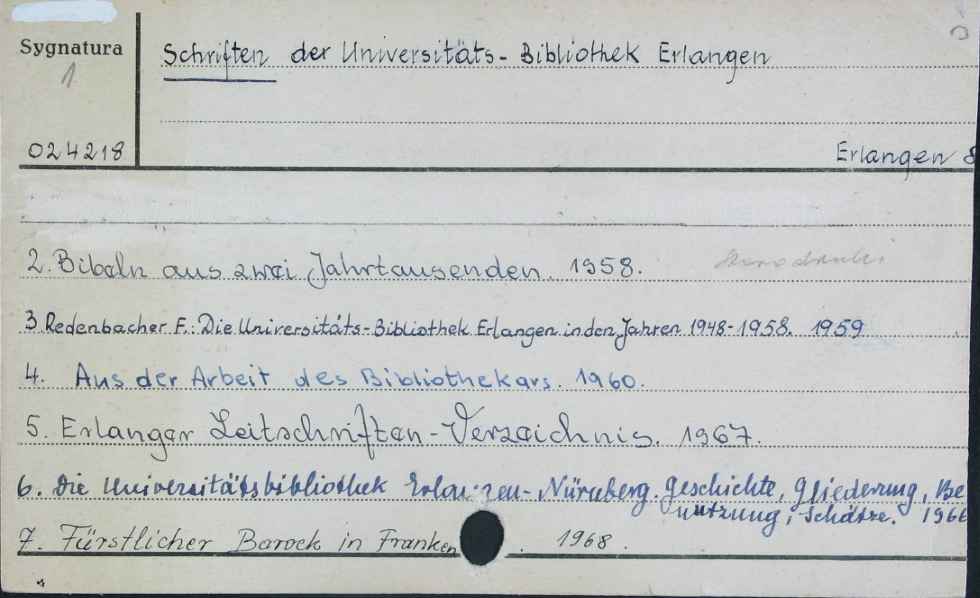 Sygnatura
1
Schriften der Universitäts-Bibliothek Erlangen
024218
Erlangen 8
2. Bibeln aus zwei Jahrtausenden. 1958.
3 Redenbacher F.: Die Universitäts-Bibliothek Erlangen in den Jahren 1948-1958. 1959
4. Aus der Arbeit des Bibliothekars. 1960.
5. Erlanger Zeitschriften-Verzeichnis. 1967.
6. Die Universitätsbibliothek Erlangen-Nürnberg. Geschichte, Gliederung, Be
nutzung, Schätze. 1966
7. Fürstlicher Barock in Franken. 1968.